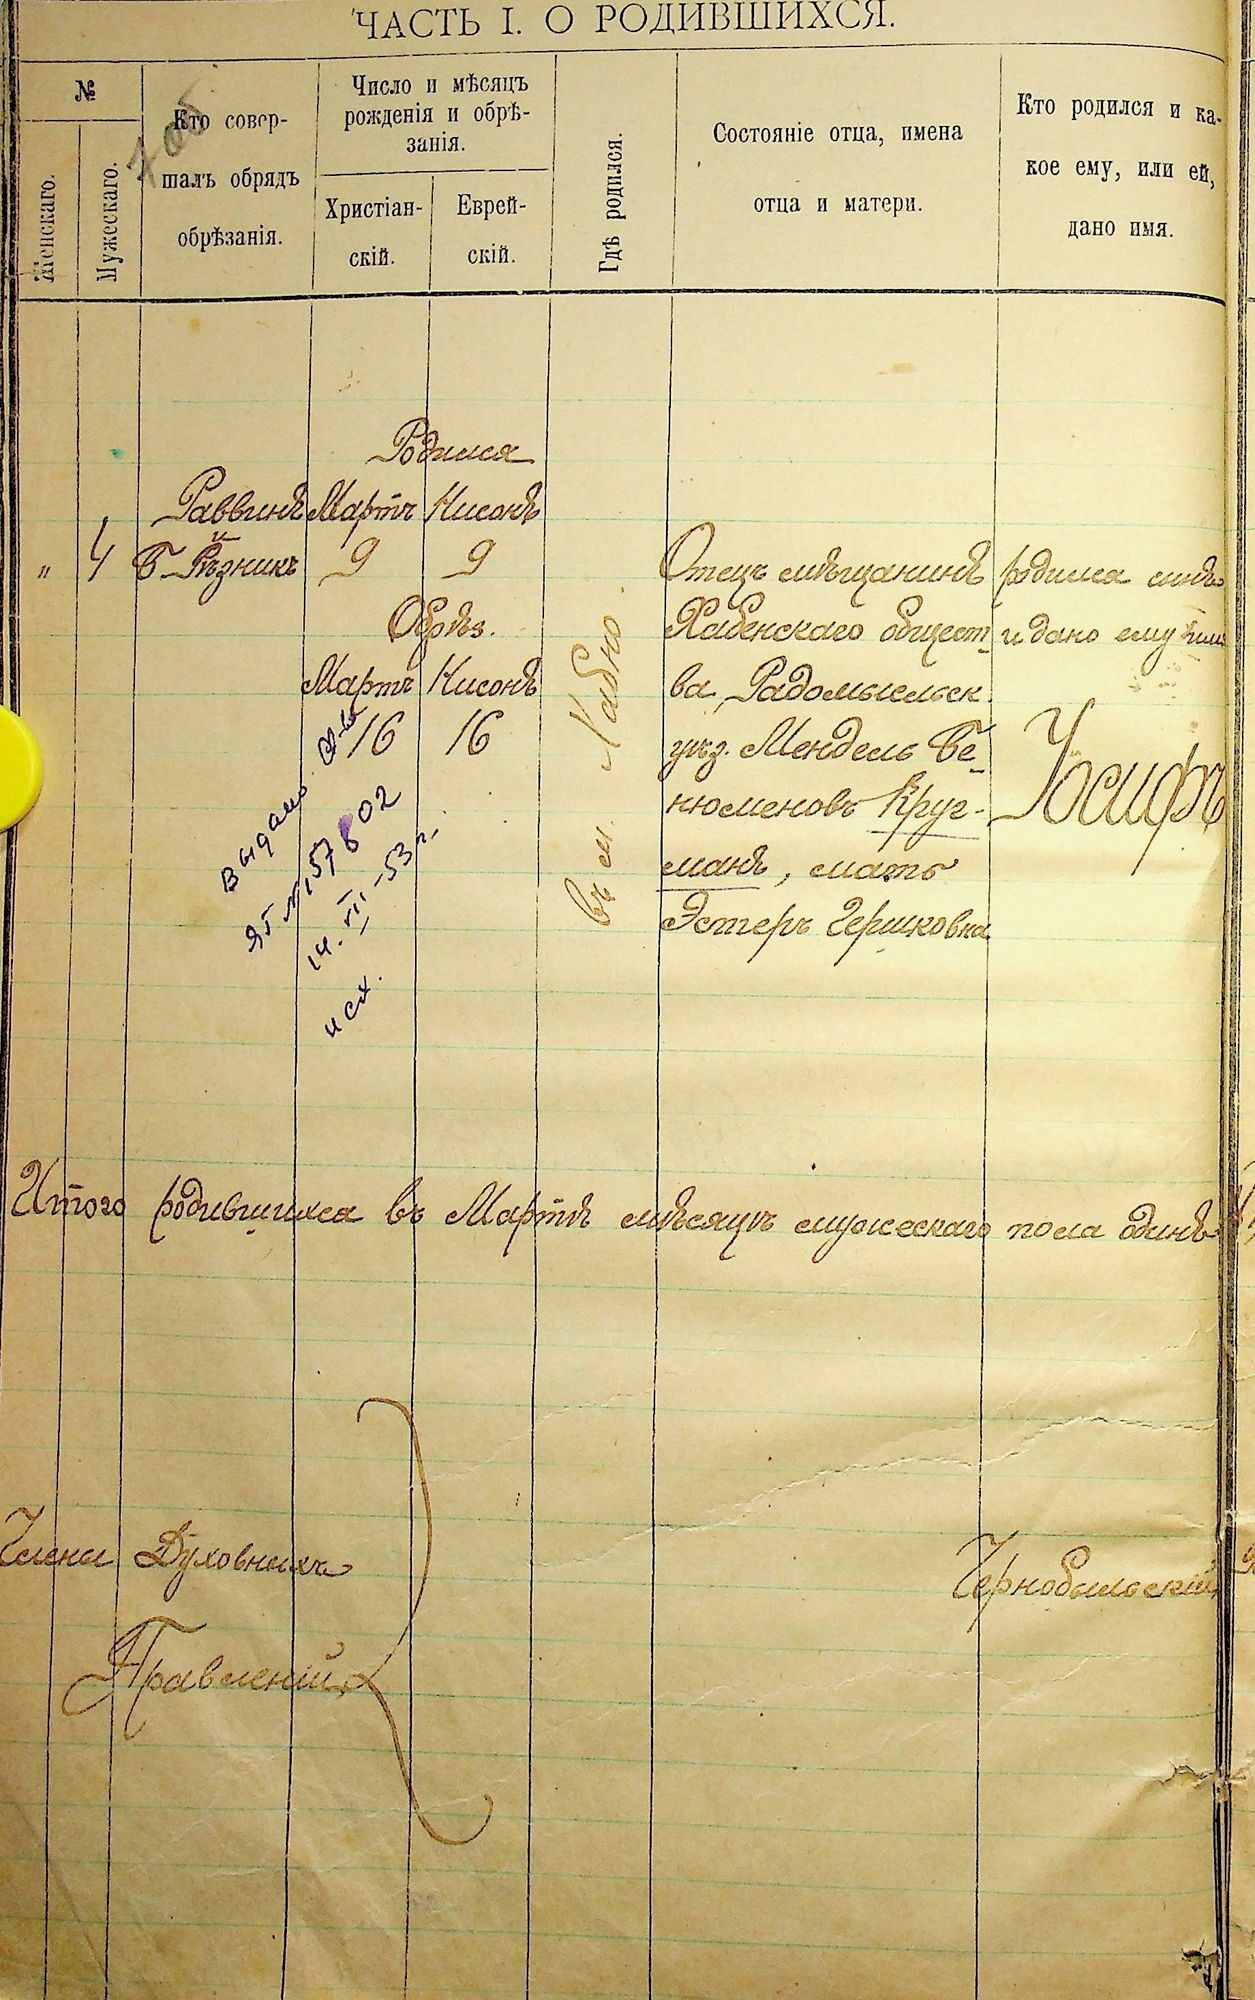 ЧАСТЬ I. О РОДИВШИХСЯ.
№
Женскаго.
Мужескаго.
Кто совер-
шалъ обрядъ
обрѣзанія.
Число и мѣсяцъ
рожденія и обрѣ-
занія.
Христіан-
скій.
Еврей-
скій.
Гдѣ родился.
Состояніе отца, имена
отца и матери.
Кто родился и ка-
кое ему, или ей,
дано имя.
Родился
Раввинъ Мартъ Нисонъ
и
" 4 Б-Рѣзникъ 9 9
Обрѣз.
Мартъ Нисонъ
16 16
въ м. Хабно.
Отецъ мѣщанинъ
Хабенскаго общест-
ва, Радомысльск.
уѣз. Мендель Бе-
нюменовъ Круг-
манъ, мать
Эстеръ Гершковна
родился сынъ
и дано ему имя
Іосифъ
Выдано св-во
ЯТ № 157802
14.VII-53 г.
исх.
Итого родившихся въ Мартѣ мѣсяцѣ мужескаго пола одинъ
Члены Духовныхъ
Чернобыльскій
Правленій